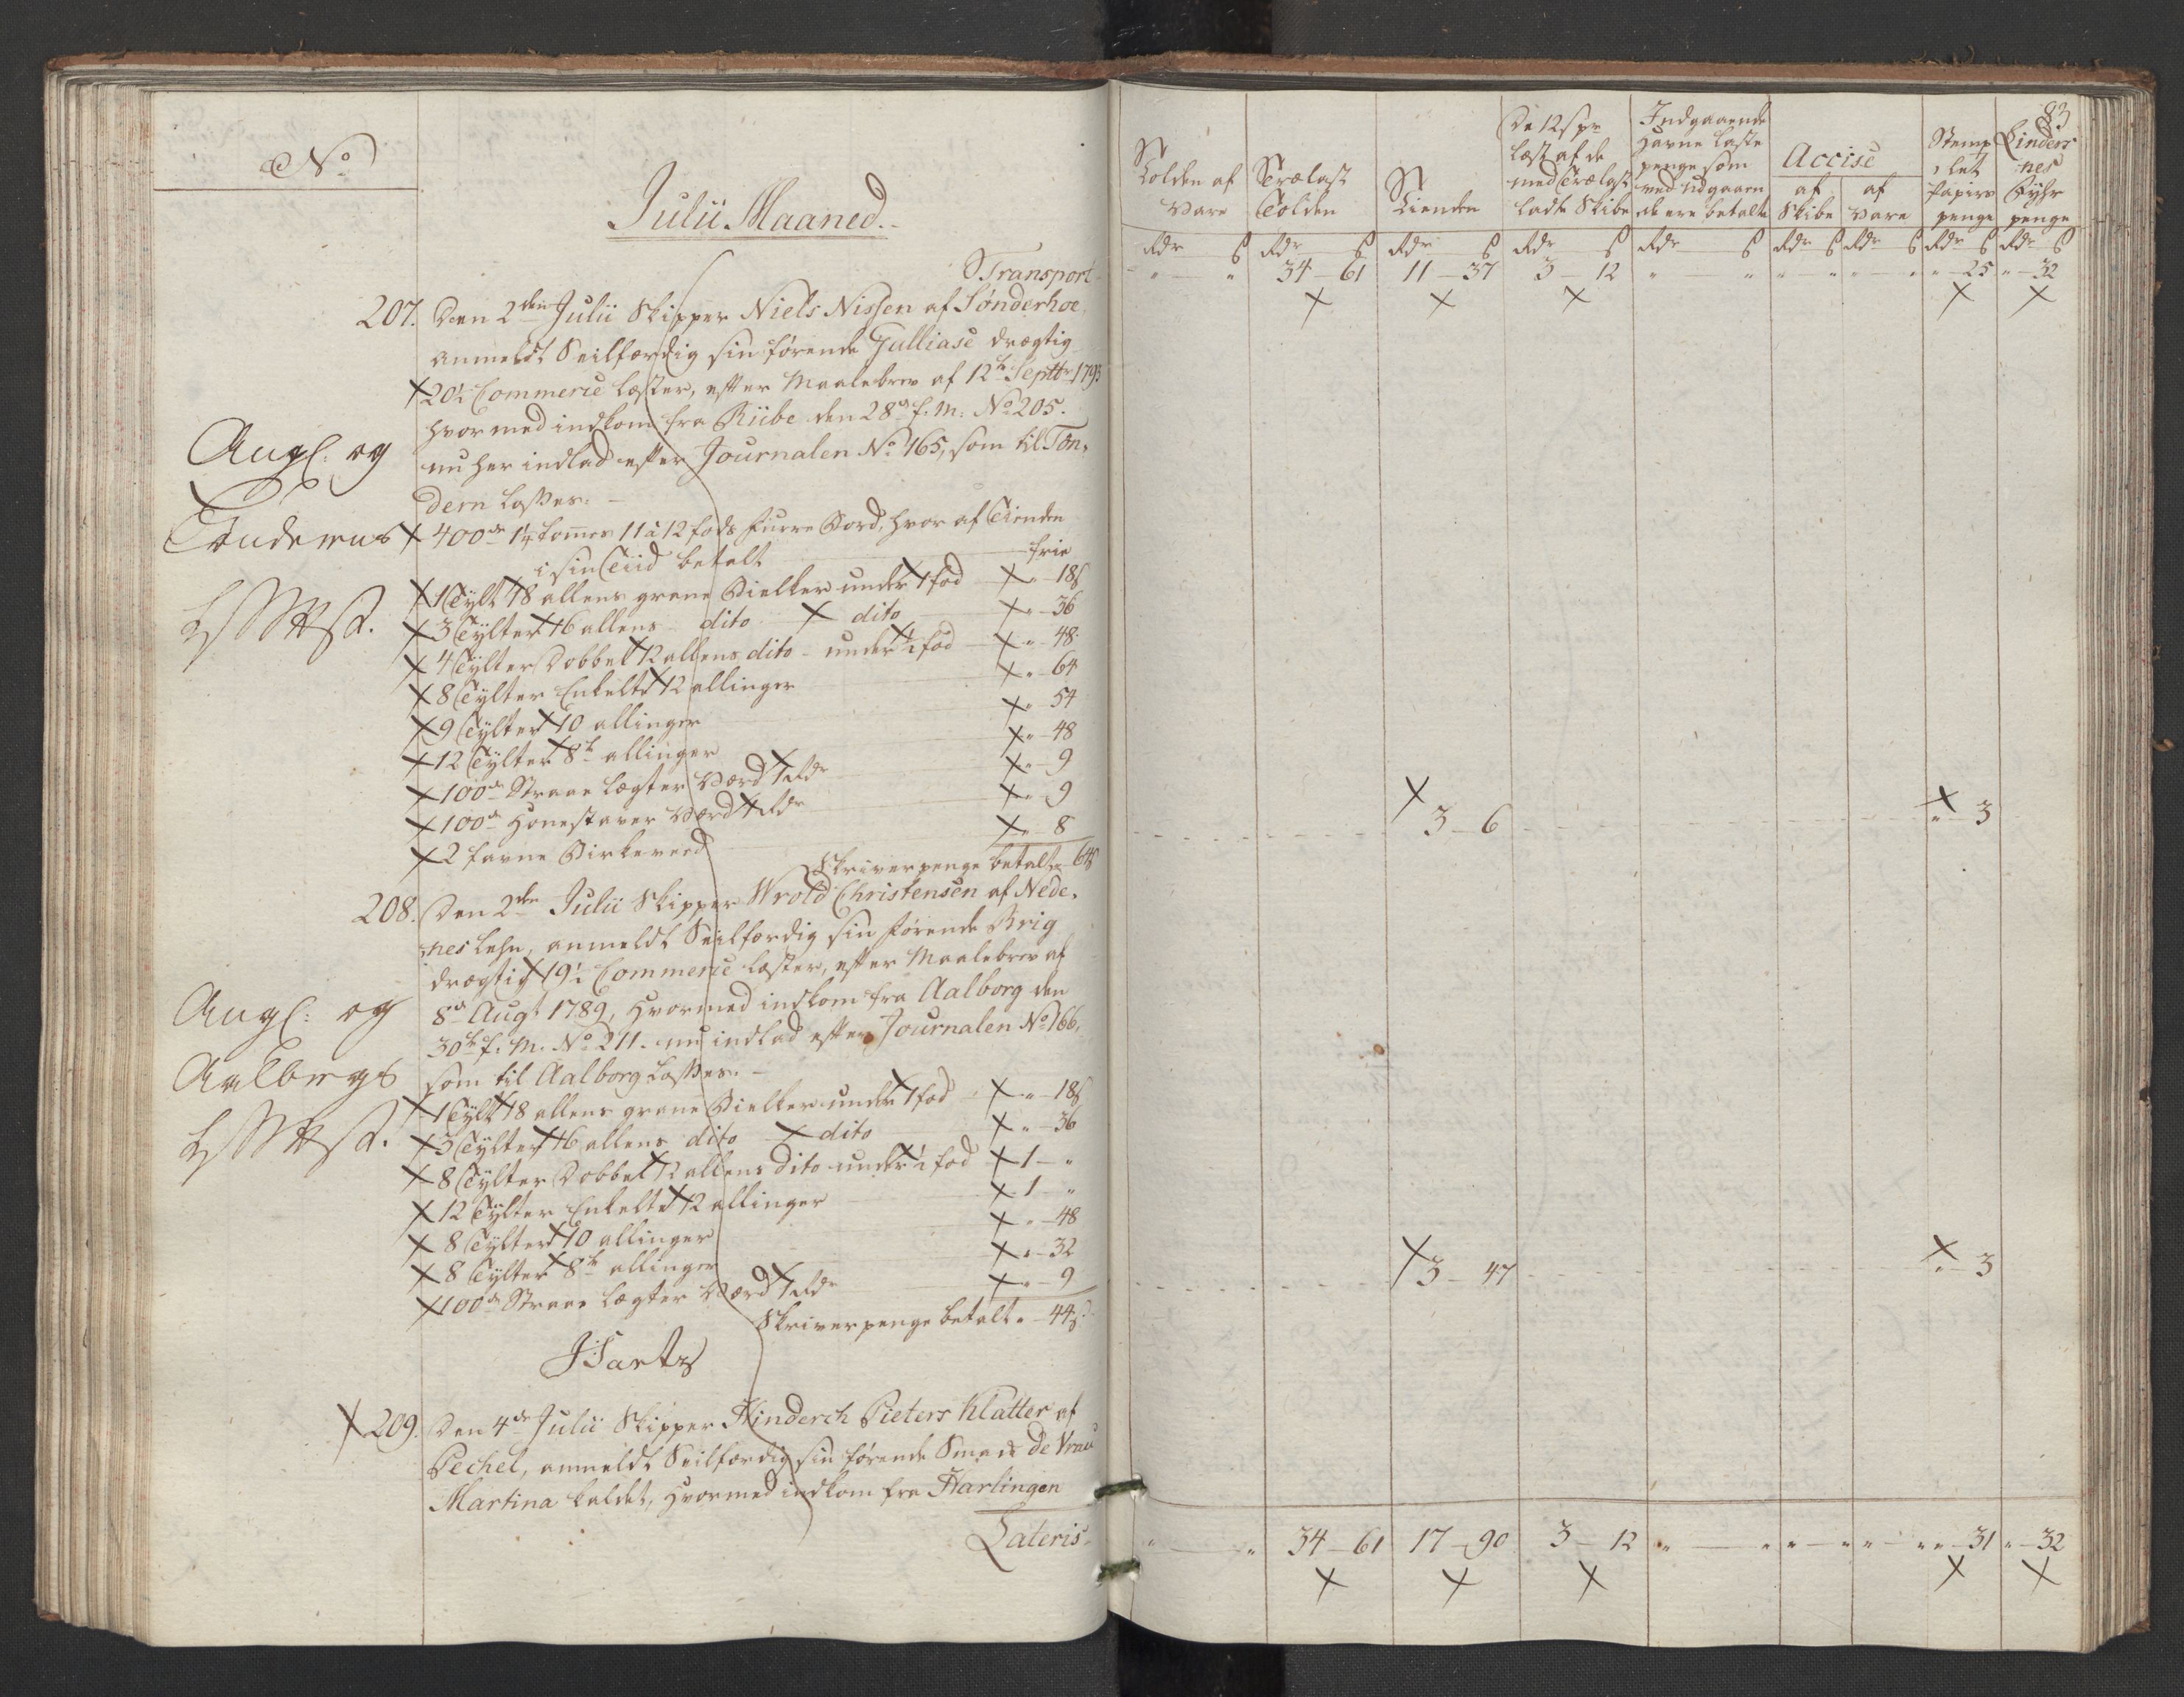 No
Julii Maaned.
Transport
207. Den 2den Julii Skipper Niels Nissen af Sønderhoe
anmeldt Seilfærdig sin førende Galliase drægtig
20½ Commerce læster, efter Maalebrev af 12te Septbr 1793
hvormed indkom fra Riibe den 28de f. M. No 205.
nu her indlad efter Journalen No 165, som til Ton-
dern losses.
Angl: og
Tonderns
400de 1¼ tommes 11 à 12 fods furre Bord, hvor af Tienden
i sin Tiid betalt frie
1 Tylt 18 allens grane Bielker under 1 fod " 18 ß
3 Tylter 16 allens dito dito " 36
4 Tylter Dobbelt 12 allens dito under ½ fod " 48
8 Tylter Enkelte 12 allinger " 64
9 Tylter 10 allinger " 54
12 Tylter 8te allinger " 48
100de Straae lægter Værd 1 Rdr " 9
100de Honestaver Værd 1 Rdr " 9
2 favne Birkeveed " 8
Skriverpenge betalt " 64 ß
208. Den 2den Julii Skipper Wrold Christensen af Nede-
nes Lehn, anmeldt Seilfærdig sin førende Brig
drægtig 19½ Commerce læster, efter Maalebrev af
8de Augt 1789, hvormed indkom fra Aalborg den
30te f. M. No 211. nu indlad efter Journalen No 166,
som til Aalborg losses.
Angl: og
Aalborgs
1 Tylt 18 allens grane Bielker under 1 fod " 18 ß
3 Tylter 16 allens dito dito " 36
8 Tylter Dobbelt 12 allens dito under ½ fod 1 "
12 Tylter Enkelte 12 allinger 1 "
8 Tylter 10 allinger " 48
8 Tylter 8te allinger " 32
100de Straae lægter Værd 1 Rdr " 9
Skriverpenge betalt " 44 ß
209. Den 4de Julii Skipper Hinderch Pieters Klatter af
Pechel, anmeldt Seilfærdig sin førende Smak De Vrau
Martina kaldet, hvormed indkom fra Harlingen
Lateris
83
Tolden af Vare
Trælast Tolden
Tienden
De 12 ß pr læst af de med Trælast ladte Skibe
Indgaaende Havne Laste penge som ved udgaaen de ere betalte
Accise
af Skibe
af Vare
Stemplet Papirs penge
Lindersnes Fyhr penge
Rdr ß Rdr ß Rdr ß Rdr ß Rdr ß Rdr ß Rdr ß Rdr ß Rdr ß
" " 34 61 11 37 3 12 " " " " " " " 25 " 32
3 6 " 3
3 47 " 3
" " 34 61 17 90 3 12 " " " " " " " 31 " 32